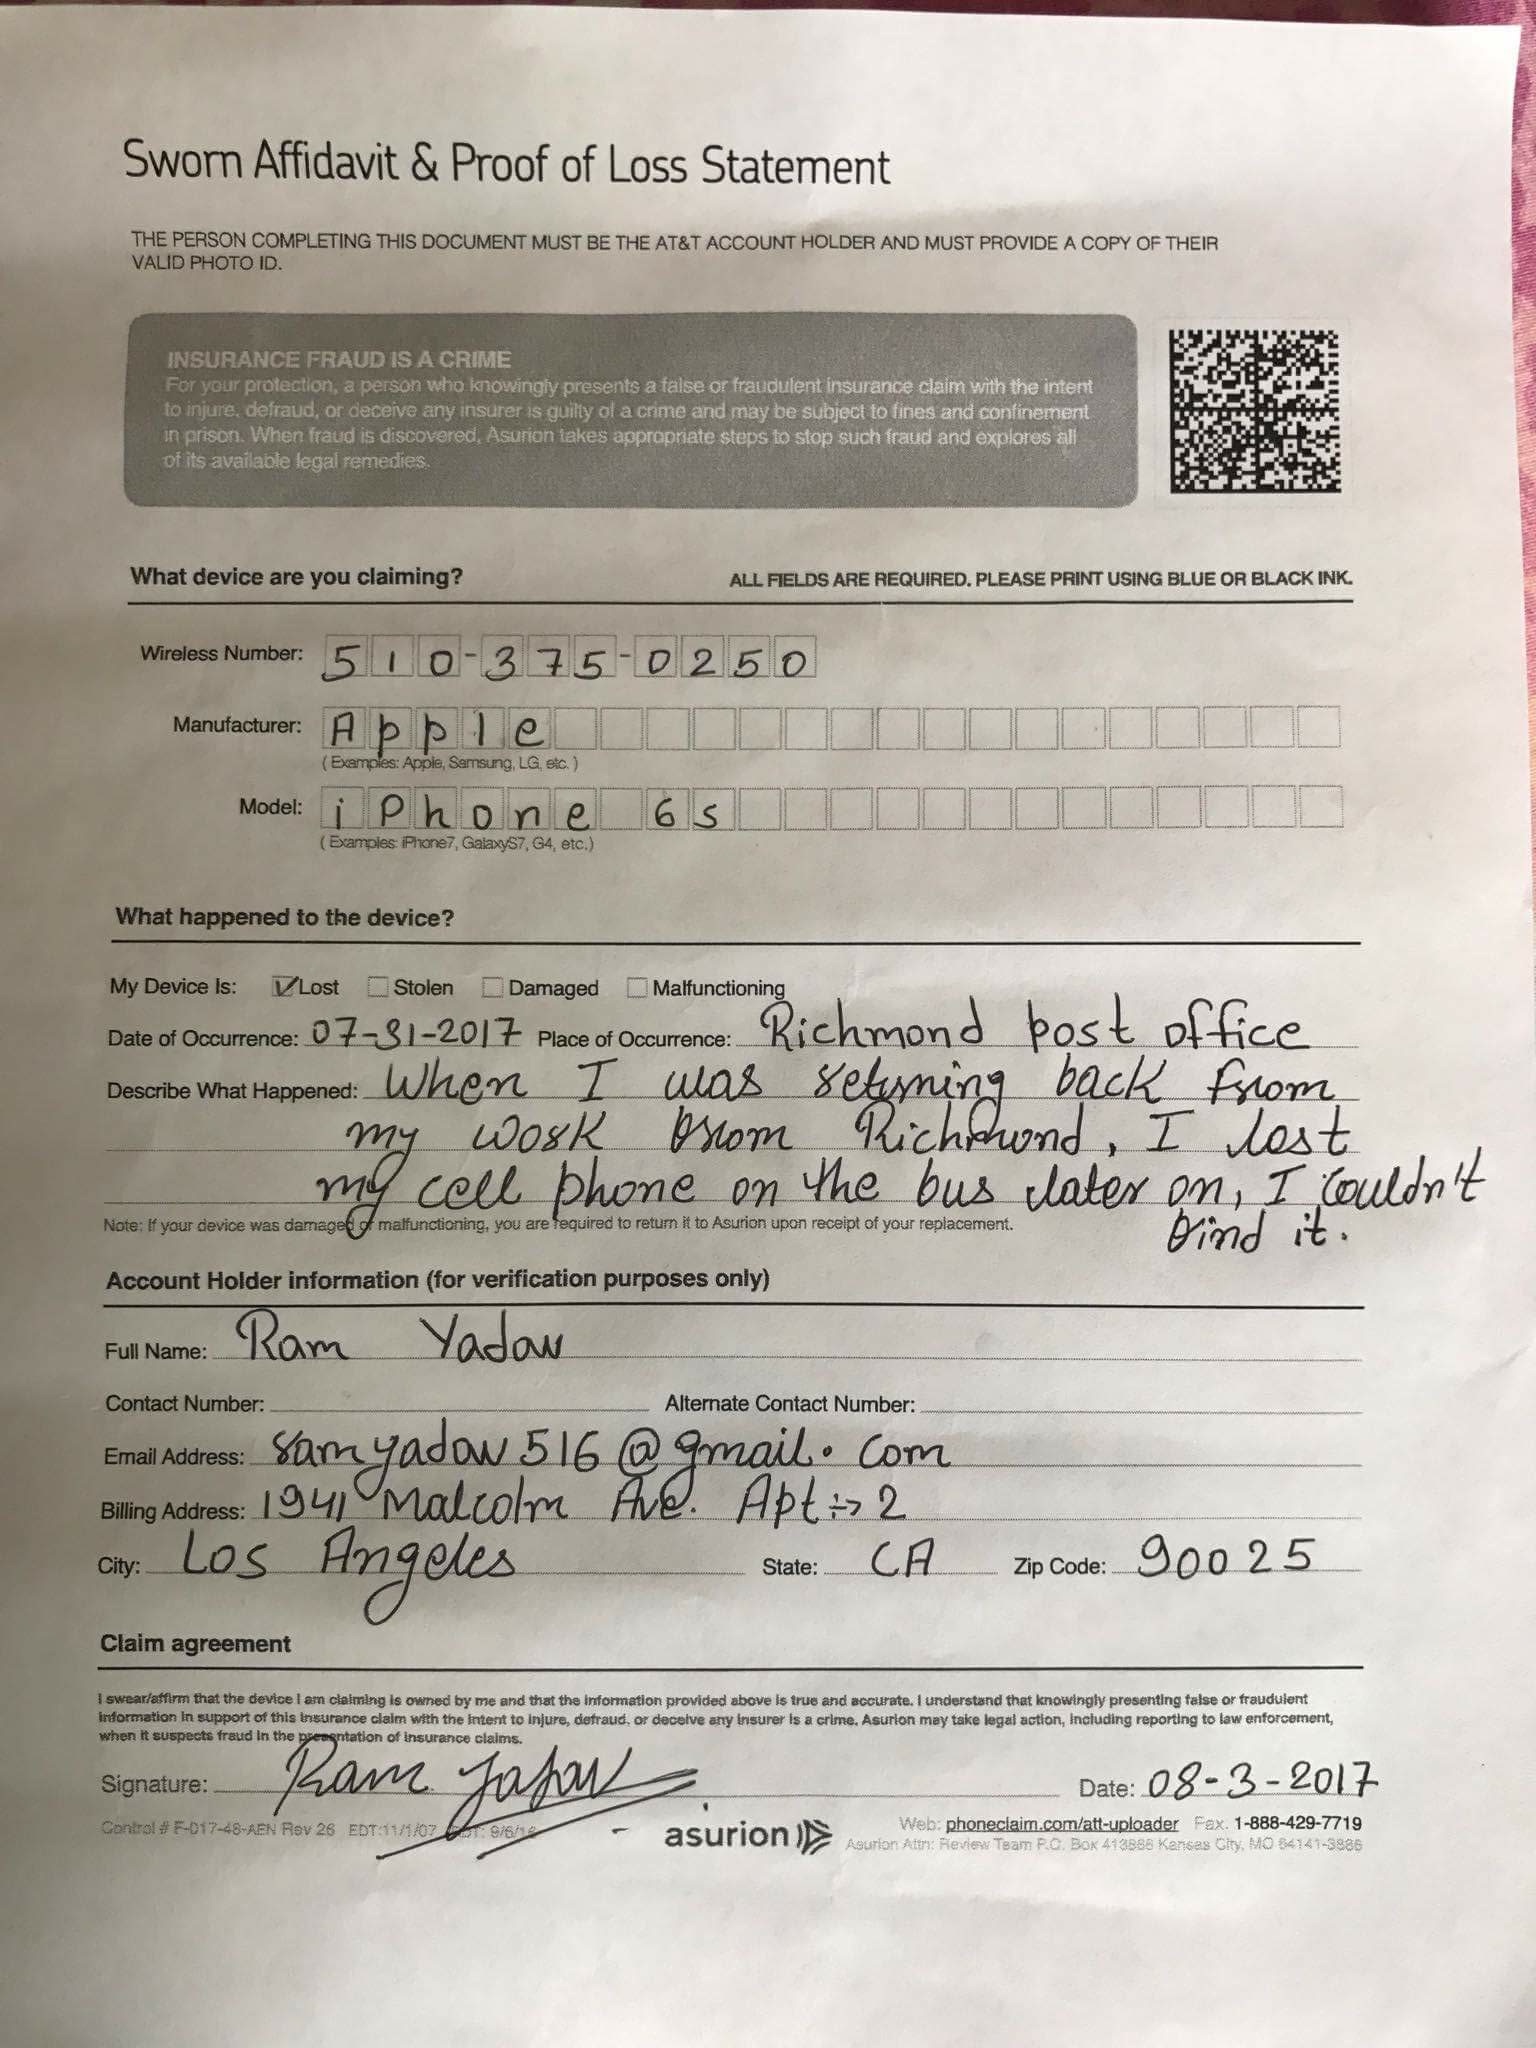 Sworn Affidavit & Proof of Loss Statement
THE PERSON COMPLETING THIS DOCUMENT MUST BE THE AT&T ACCOUNT HOLDER AND MUST PROVIDE A COPY OF THEIR
VALID PHOTO ID.
INSURANCE FRAUD IS A CRIME
For your protection, a person who knowingly presents a false or fraudulent insurance claim with the intent
to injure, defraud, or deceive any insurer is guilty of a crime and may be subject to fines and confinement
in prison. When fraud is discovered, Asurion takes appropriate steps to stop such fraud and explores all
of its available legal remedies.
What device are you claiming? ALL FIELDS ARE REQUIRED. PLEASE PRINT USING BLUE OR BLACK INK.
Wireless Number: 510-375-0250
Manufacturer: Apple
( Examples: Apple, Samsung, LG, etc. )
Model: iPhone 6s
( Examples: iPhone7, GalaxyS7, G4, etc.)
What happened to the device?
My Device Is: Lost Stolen Damaged Malfunctioning
Date of Occurrence: 07-31-2017 Place of Occurrence: Richmond post office
Describe What Happened: When I was returning back from
my work from Richmond, I lost
my cell phone on the bus later on, I couldn't
find it.
Note: If your device was damaged or malfunctioning, you are required to return it to Asurion upon receipt of your replacement.
Account Holder information (for verification purposes only)
Full Name: Ram Yadav
Contact Number: Alternate Contact Number:
Email Address: ramyadav516@gmail.com
Billing Address: 1941 Malcolm Ave. Apt :-> 2
City: Los Angeles State: CA Zip Code: 90025
Claim agreement
I swear/affirm that the device I am claiming is owned by me and that the information provided above is true and accurate. I understand that knowingly presenting false or fraudulent
information in support of this insurance claim with the intent to injure, defraud, or deceive any insurer is a crime. Asurion may take legal action, including reporting to law enforcement,
when it suspects fraud in the presentation of insurance claims.
Signature: Ram Yadav Date: 08-3-2017
Control # F-017-48-AEN Rev 26 EDT:11/1/07
asurion
Web: phoneclaim.com/att-uploader Fax. 1-888-429-7719
Asurion Attn: Review Team P.O. Box 413886 Kansas City, MO 64141-3886